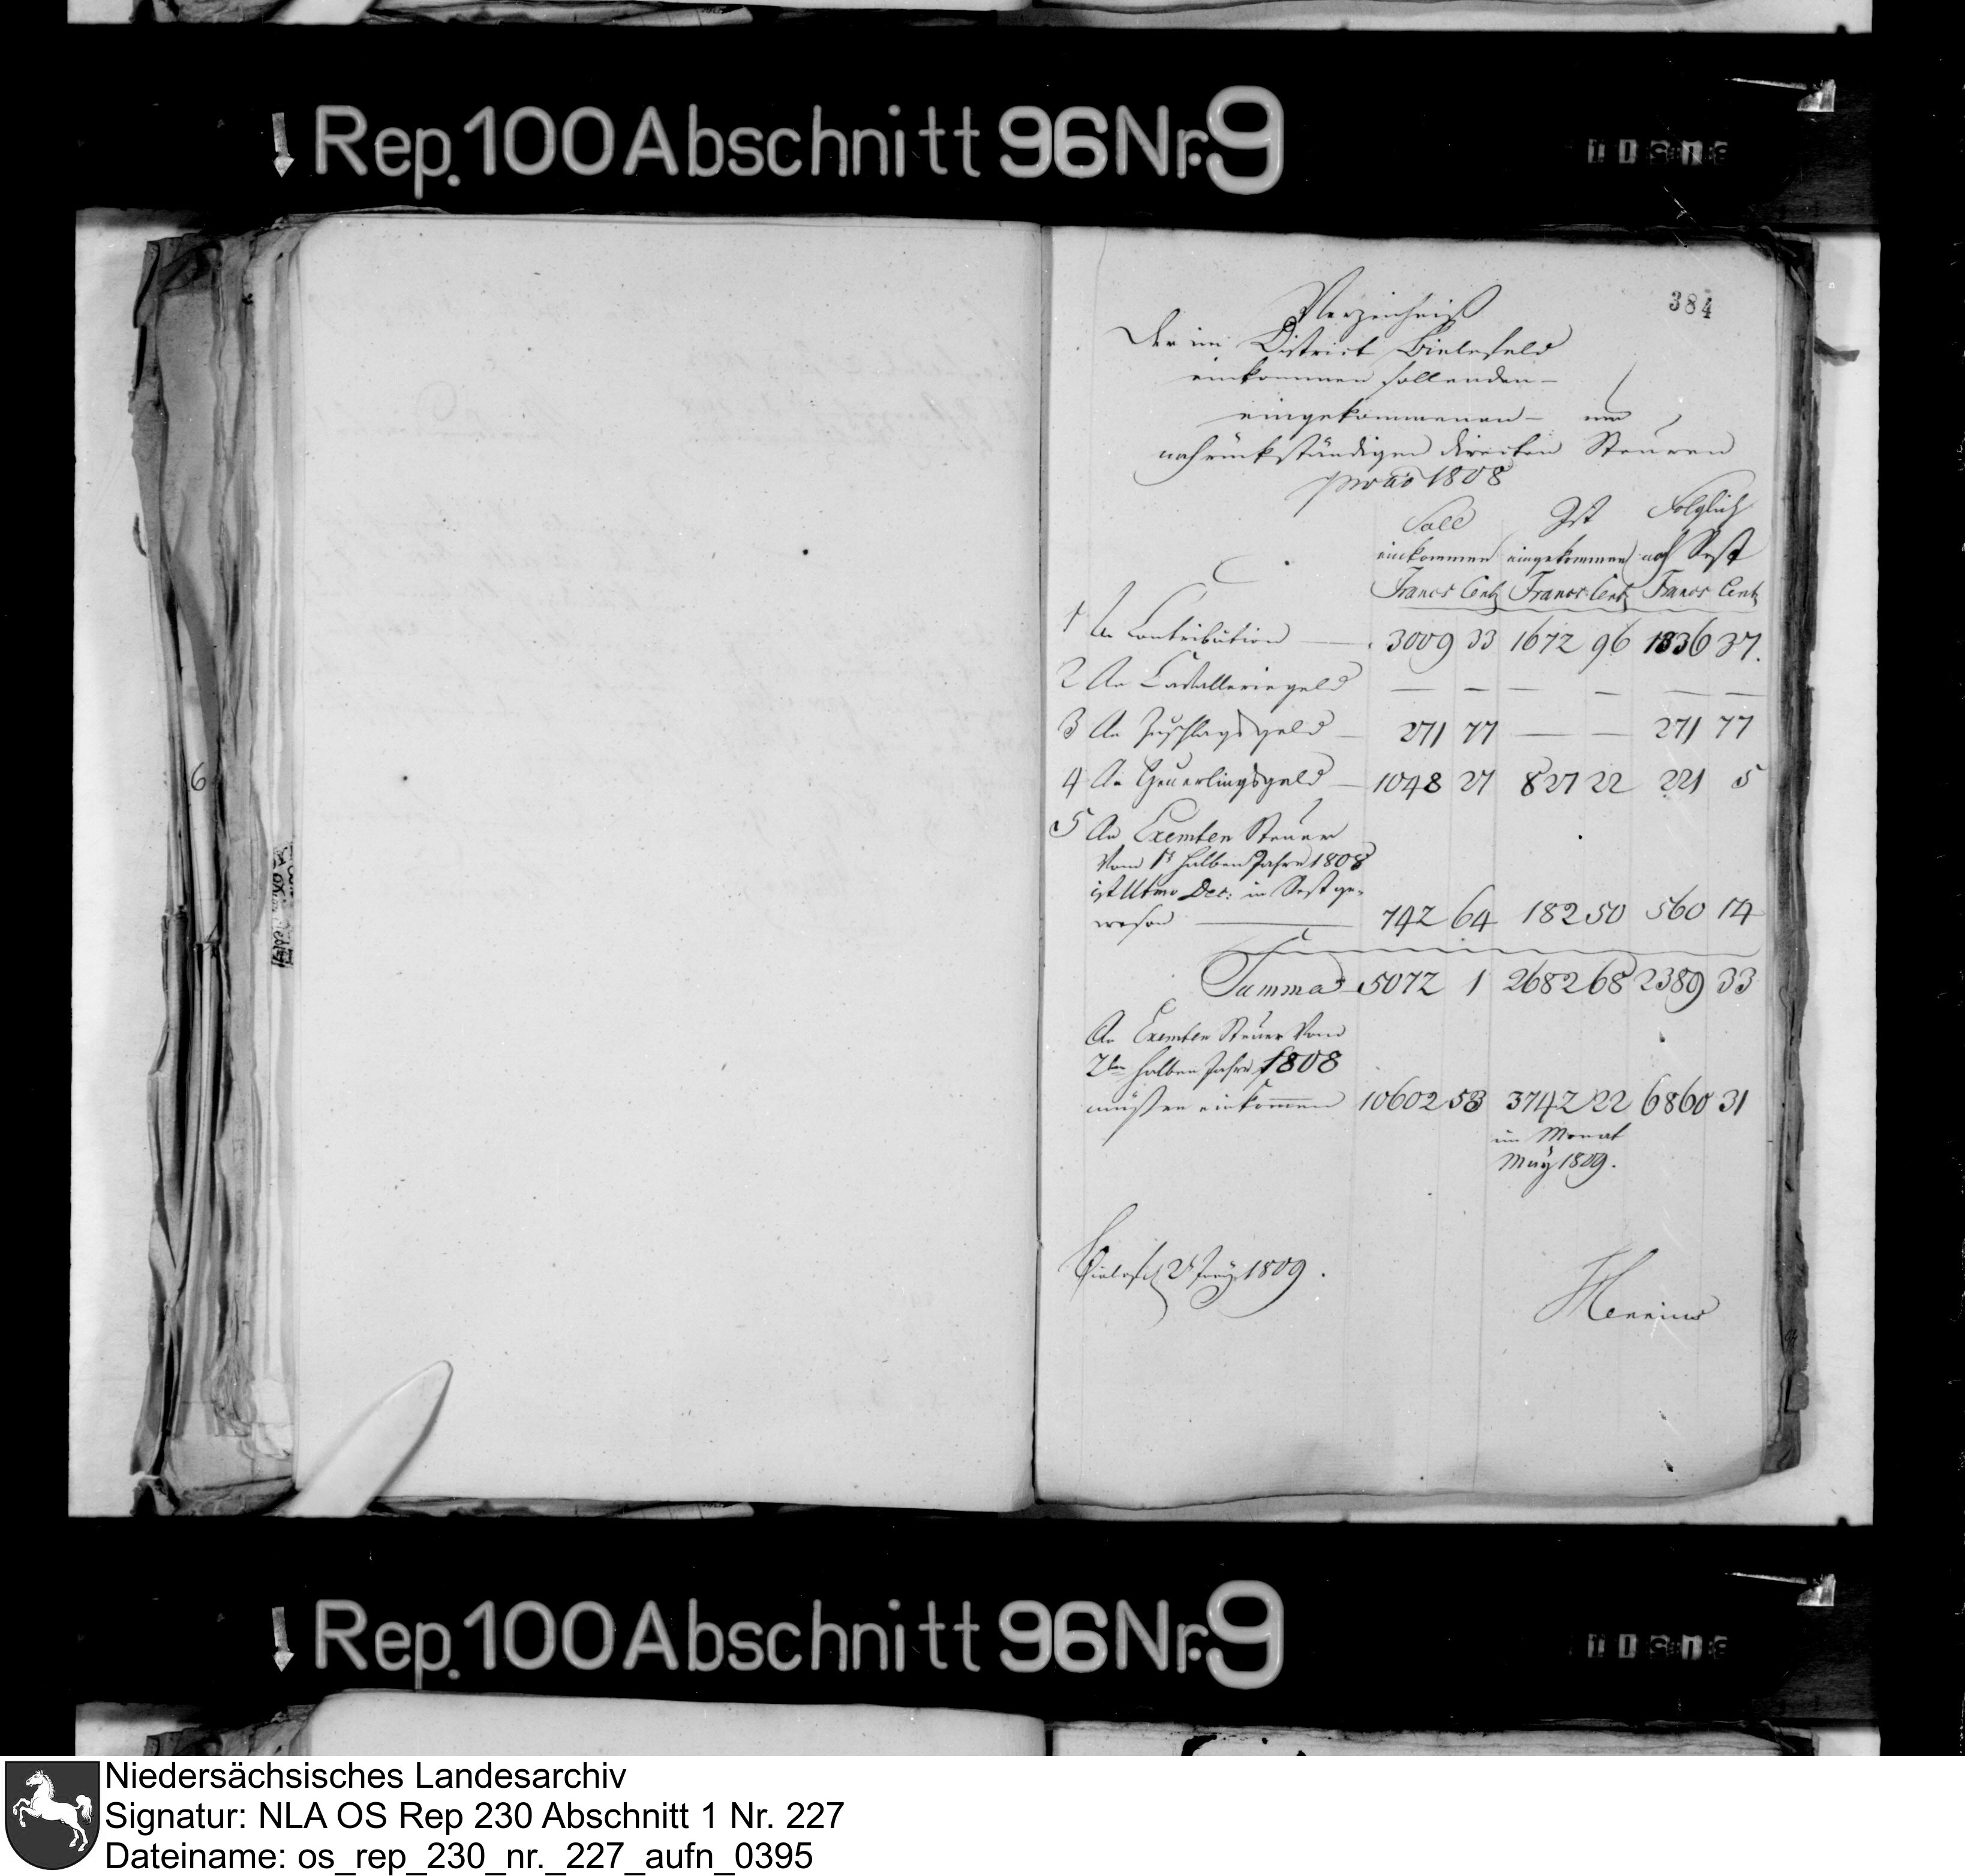 Rep. 100 Abschnitt 96 Nr. 9
384
Verzeichniß
der im District Bielefeld
einkommen sollenden-
eingekommenen- und
nachrückständigen directen Steuren
pro ao 1808
Soll Ist Folglich
einkommen eingekommen noch Rest
Francs Cent Francs Cent Francs Cent
1 An Contribution 3009 33 1672 96 1336 37.
2 An Cavalleriegeld — — — — — —
3 An Zuschlagsgeld — 271 77 — — 271 77
4 An Heuerlingsgeld — 1048 27 827 22 221 5
5 An Exemten Steuer
vom 1t halben Jahre 1808
ist Ultmo Dec: in Rest ge-
wesen 742 64 182 50 560 14
Summa 5072 1 2682 68 2389 33
An Exemten Steuer vom
2ten halben Jahre 1808
müßen einkommen 10602 53 3742 22 6860 31
im Monat
May 1809.
Bielefd 2t Juny 1809.
6
Rep. 100 Abschnitt 96 Nr. 9
Niedersächsisches Landesarchiv
Signatur: NLA OS Rep 230 Abschnitt 1 Nr. 227
Dateiname: os_rep_230_nr._227_aufn_0395